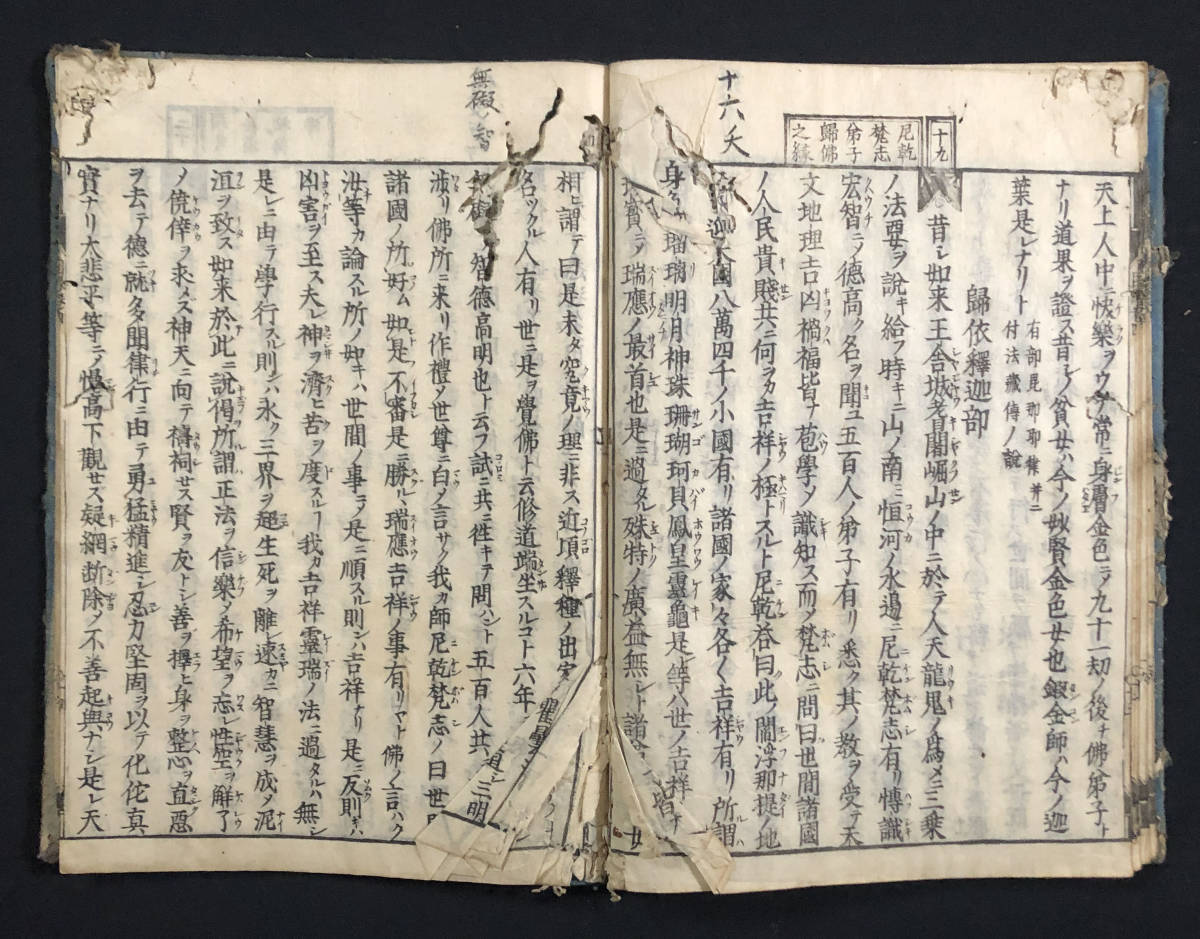 十六大
十九
尼乾
梵志
弟子
歸佛
之縁
天上人中ニ快樂ヲウケ常ニ身膚金色ニメ九十一劫ノ後チ佛弟子ト
ナリ道果ヲ證ス昔シノ貧女ハ今ノ妙賢金色女也鍜金師ハ今ノ迦
葉是レナリト
有部毘那耶律并ニ
付法藏傳ノ說
歸依釋迦部
昔シ如来王舎城耆闍崛山ノ中ニ於テ人天龍鬼ノ為メニ三乗
ノ法要ヲ說キ給フ時キニ山ノ南ミ恒河ノ水邉ニ尼乾梵志有リ博識
宏智ニメ德高ク名ヲ聞ユ五百人ノ弟子有リ悉ク其ノ教ヲ受テ天
文地理吉凶禍福皆ナ苞學メ識知ス而メ梵志ニ問曰世間諸國
ノ人民貴賤共ニ何ヲカ吉祥ノ極トスルト尼乾荅曰此ノ閻浮那提ノ地
大國八萬四千ノ小國有リ諸國ノ家々各〱吉祥有リ所謂
瑠璃明月神珠珊瑚珂貝鳳皇靈龜是等ハ世ノ吉祥
寳ニメ瑞應ノ最首也是ニ過タル殊特ノ廣益無レト諸
廿
無礙智
相ヒ謂テ曰是未タ究竟ノ理ニ非ス近頃釋種ノ出家
名ツクル人有リ世ニ是ヲ覺佛ト云修道端坐スルコト六年
智德高明也ト云フ試ニ共ニ徃キテ問ハント五百人共ニ
渉リ佛所ニ来リ作禮メ世尊ニ白メ言サク我カ師尼乾梵志ノ曰世
諸國ノ所好ム如是不審是ニ勝ルル瑞應吉祥ノ事有リヤト佛ノ言ハク
汝等カ論スル所ノ如キハ世間ノ事ヲ是ニ順スル則シハ吉祥ナリ是ニ反則キハ
凶害ヲ至ス夫レ神ヲ濟ヒ苦ヲ度スルヿ我カ吉祥靈瑞ノ法ニ過タルハ無シ
是レニ由テ學行スル則シハ永ク三界ヲ超生死ヲ離レ速カニ智慧ヲ成メ泥
洹ヲ致ス如来於此ニ說偈所謂正法ヲ信樂メ希望ヲ忘レ性空ヲ解了
ノ僥倖ヲ求メス神天ニ向テ禱祠セス賢ヲ友トシ善ヲ擇ヒ身ヲ整心ヲ直惡
ヲ去テ德ニ就多聞律行ニ由テ勇猛精進シ忍力堅固ヲ以テ化侘真
實ナリ大悲平等ニメ慢高下觀セス疑網断除メ不善起與ナシ是レ天
三明